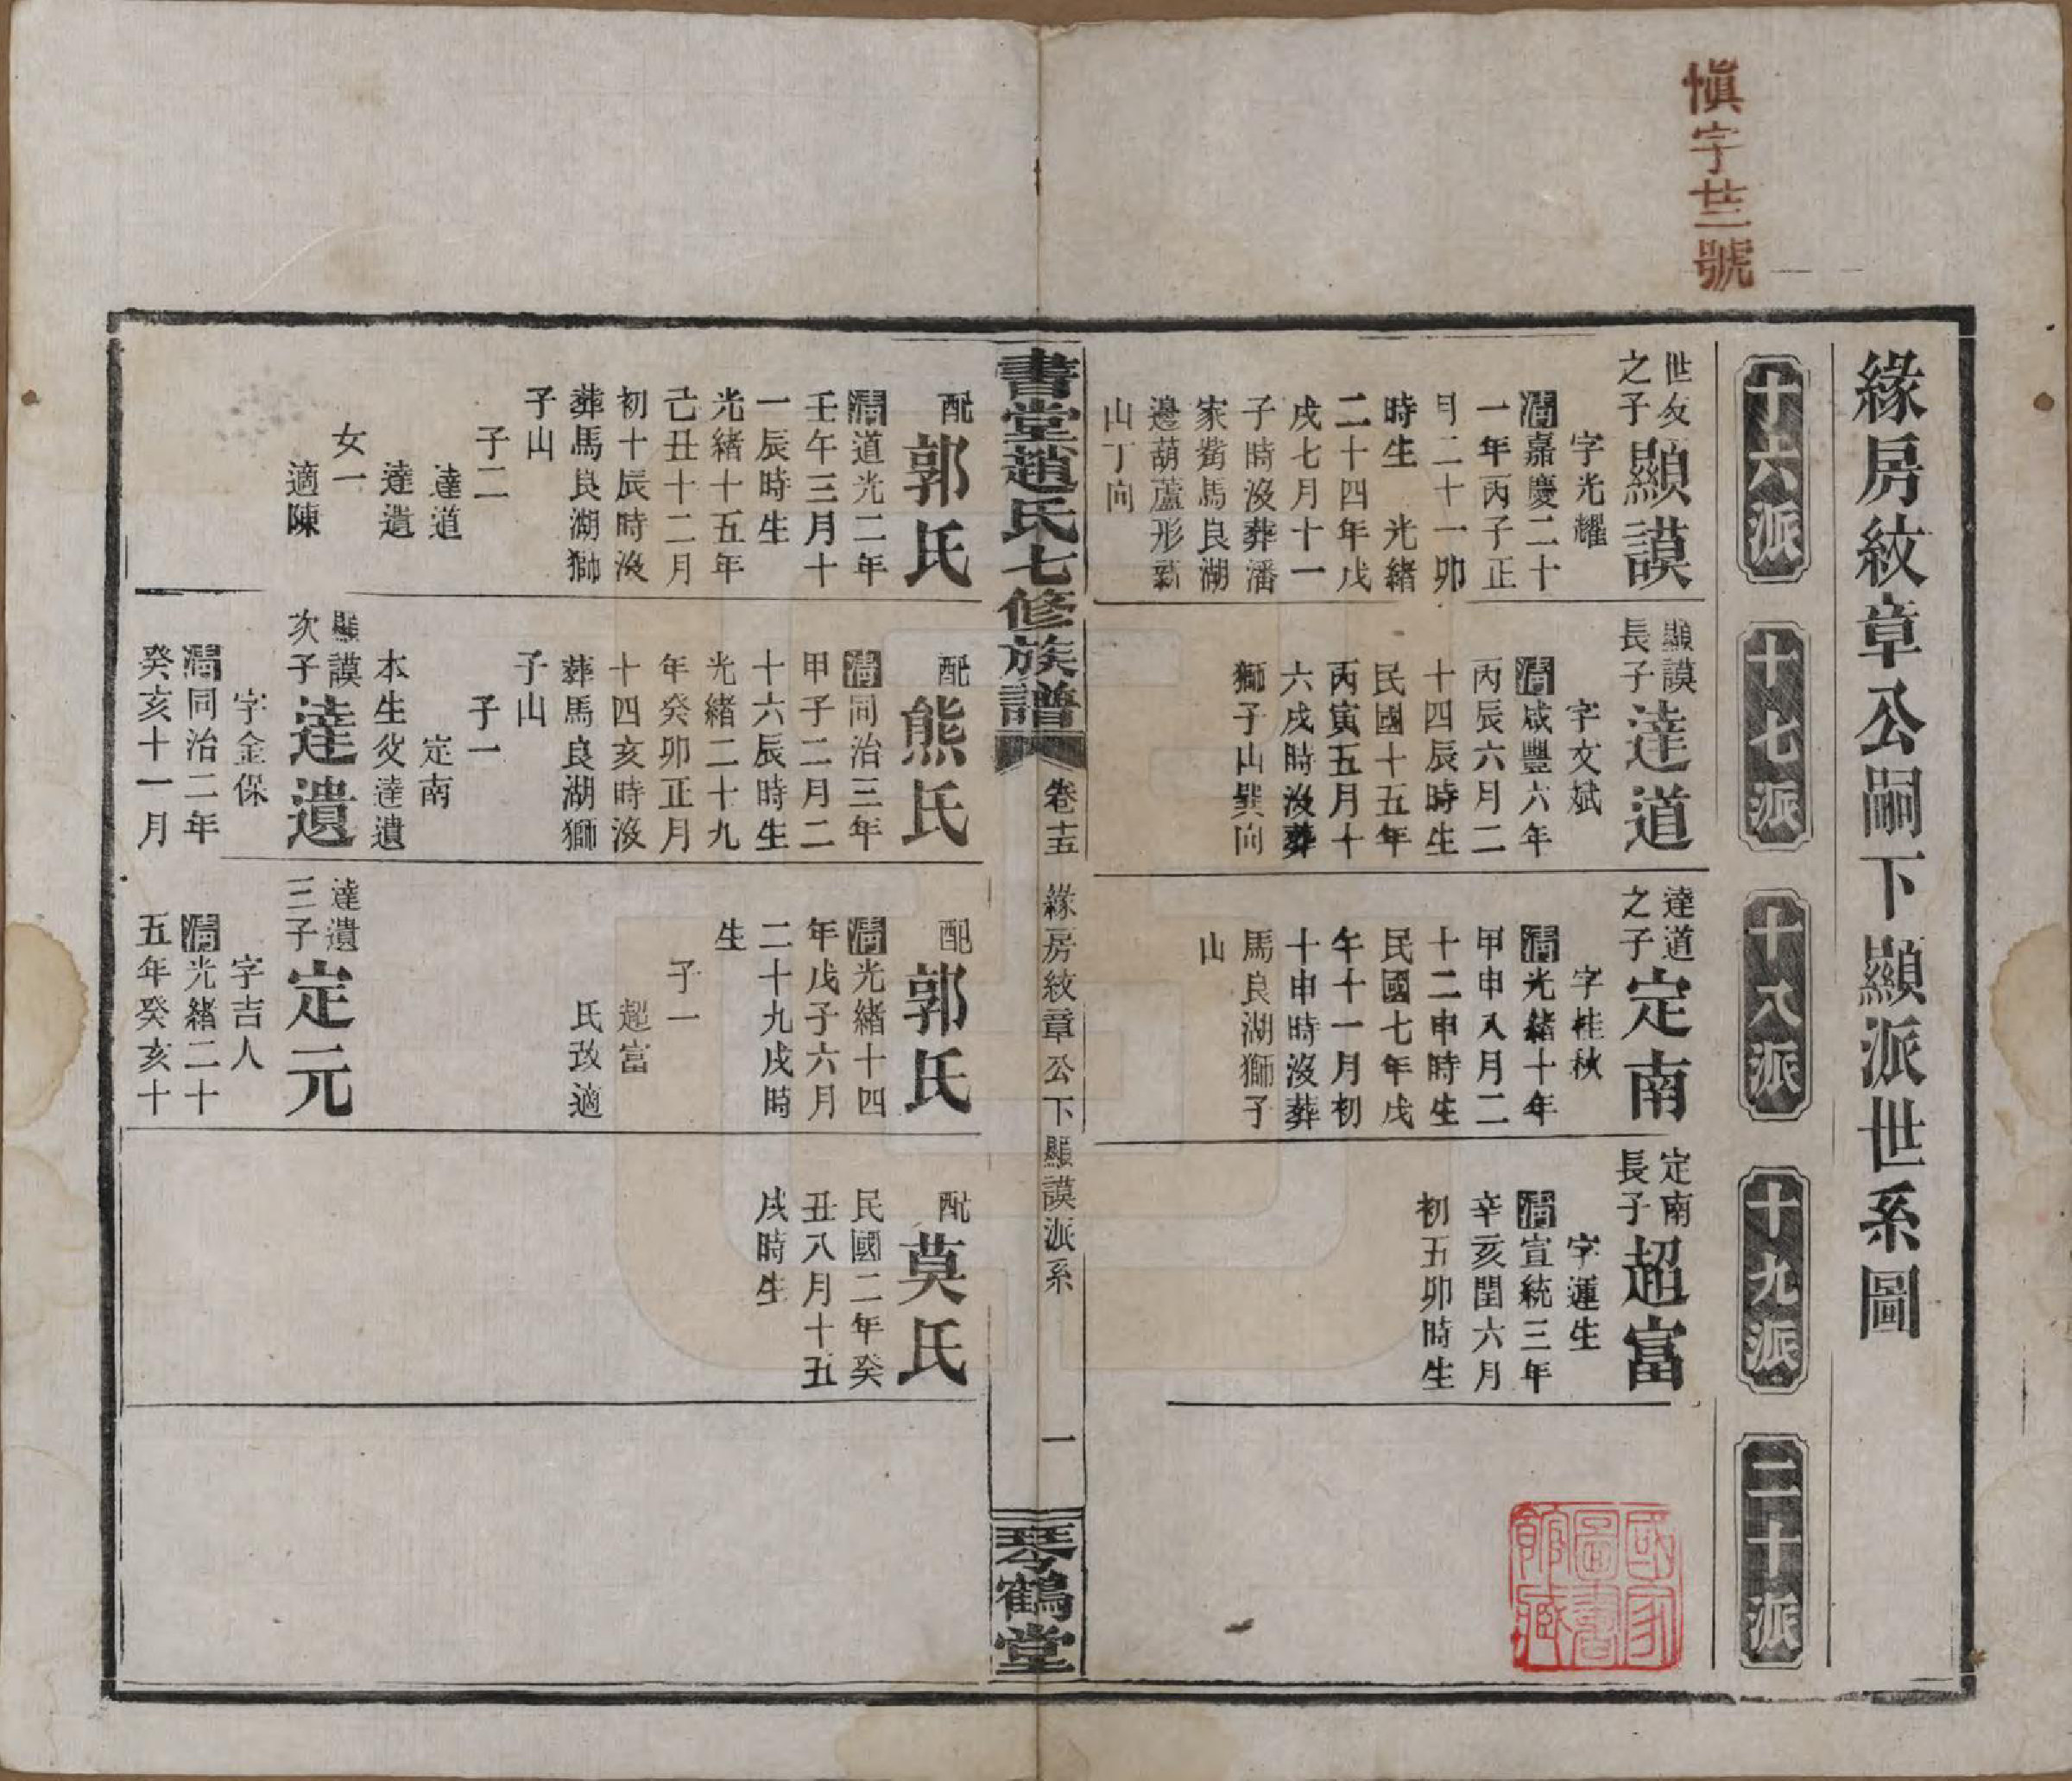 慎字廿三號
緣房紋章公嗣下顯派世系圖
十六派
十七派
十八派
十九派
二十派
世友
之子
顯謨
字光耀
清嘉慶二十
一年丙子正
月二十一卯
時生 光緒
二十四年戊
戌七月十一
子時沒葬潘
家觜馬良湖
邊葫蘆形
山丁向
配
郭氏
清道光二年
壬午三月十
一辰時生
光緒十五年
己丑十二月
初十辰時沒
葬馬良湖獅
子山
子二
達道
達遺
女一
適陳
顯謨
長子
達道
字文斌
清咸豐六年
丙辰六月二
十四辰時生
民國十五年
丙寅五月十
六戌時沒葬
獅子山巽向
配
熊氏
清同治三年
甲子二月二
十六辰時生
光緒二十九
年癸卯正月
十四亥時沒
葬馬良湖獅
子山
子一
定南
本生父達遺
顯謨
次子
達遺
字金保
清同治二年
癸亥十一月
達道
之子
定南
字桂秋
清光緒十年
甲申八月二
十二申時生
民國七年戊
午十一月初
十申時沒葬
馬良湖獅子
山
配
郭氏
清光緒十四
年戊子六月
二十九戌時
生
子一
超富
氏改適
達遺
三子
定元
字吉人
清光緒二十
五年癸亥十
定南
長子
超富
字運生
清宣統三年
辛亥閏六月
初五卯時生
配
莫氏
民國二年癸
丑八月十五
戌時生
書堂趙氏七修族譜
卷十五
緣房紋章公下顯謨派系
一
琴鶴堂
國家
圖書
館藏